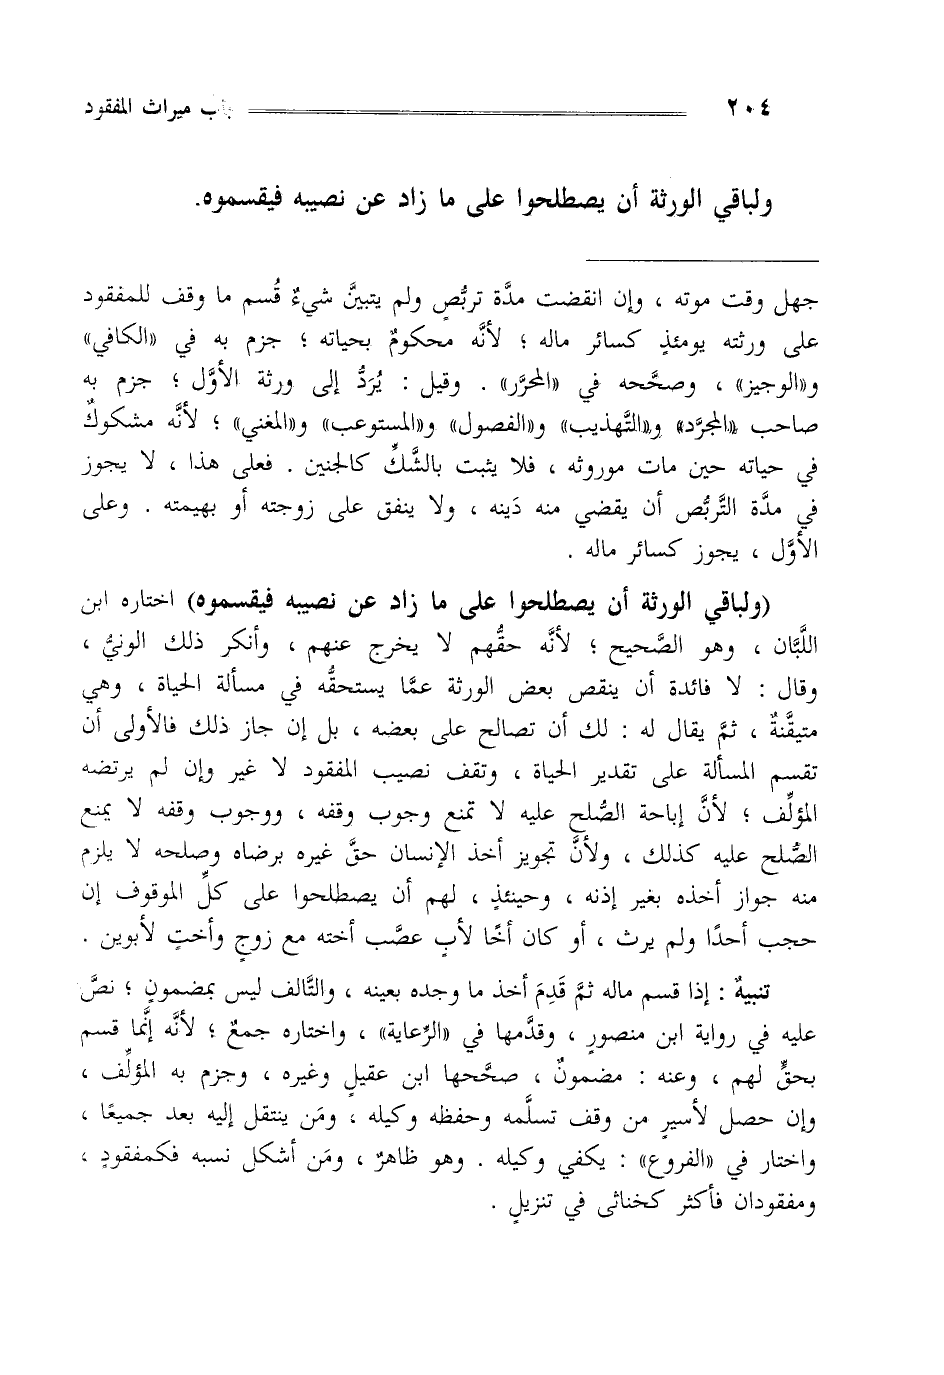 ٢٠٤ باب ميراث المفقود
ولباقي الورثة أن يصطلحوا على ما زاد عن نصيبه فيقسموه.
جهل وقت موته ، وإن انقضت مدَّة تربُّصٍ ولم يتبينَّ شيءٌ قُسم ما وقف للمفقود
على ورثته يومئذٍ كسائر ماله ؛ لأنَّه محكومٌ بحياته ؛ جزم به في «الكافي»
و«الوجيز» ، وصحَّحه في «المحرَّر» . وقيل : يُرَدُّ إلى ورثة الأوَّل ؛ جزم به
صاحب «المجرَّد» و«التَّهذيب» و«الفصول» و«المستوعب» و«المغني» ؛ لأنَّه مشكوكٌ
في حياته حين مات موروثه ، فلا يثبت بالشَّكِّ كالجنين . فعلى هذا ، لا يجوز
في مدَّة التَّربُّص أن يقضي منه دَينه ، ولا ينفق على زوجته أو بهيمته . وعلى
الأوَّل ، يجوز كسائر ماله .
(ولباقي الورثة أن يصطلحوا على ما زاد عن نصيبه فيقسموه) اختاره ابن
اللَّبَّان ، وهو الصَّحيح ؛ لأنَّه حقُّهم لا يخرج عنهم ، وأنكر ذلك الونيُّ ،
وقال : لا فائدة أن ينقص بعض الورثة عمَّا يستحقُّه في مسألة الحياة ، وهي
متيقَّنةٌ ، ثمَّ يقال له : لك أن تصالح على بعضه ، بل إن جاز ذلك فالأولى أن
تقسم المسألة على تقدير الحياة ، وتقف نصيب المفقود لا غير وإن لم يرتضه
المؤلِّف ؛ لأنَّ إباحة الصُّلح عليه لا تمنع وجوب وقفه ، ووجوب وقفه لا يمنع
الصُّلح عليه كذلك ، ولأنَّ تجويز أخذ الإنسان حقَّ غيره برضاه وصلحه لا يلزم
منه جواز أخذه بغير إذنه ، وحينئذٍ ، لهم أن يصطلحوا على كلِّ الموقوف إن
حجب أحدًا ولم يرث ، أو كان أخًا لأبٍ عصَّب أخته مع زوجٍ وأختٍ لأبوين .
تنبيهٌ : إذا قسم ماله ثمَّ قَدِمَ أخذ ما وجده بعينه ، والتَّالف ليس بمضمونٍ ؛ نصَّ
عليه في رواية ابن منصورٍ ، وقدَّمها في «الرِّعاية» ، واختاره جمعٌ ؛ لأنَّه إنَّما قسم
بحقٍّ لهم ، وعنه : مضمونٌ ، صحَّحها ابن عقيلٍ وغيره ، وجزم به المؤلِّف ،
وإن حصل لأسيرٍ من وقف تسلَّمه وحفظه وكيله ، ومَن ينتقل إليه بعد جميعًا ،
واختار في «الفروع» : يكفي وكيله . وهو ظاهرٌ ، ومَن أشكل نسبه فكمفقودٍ ،
ومفقودان فأكثر كخناثى في تنزيلٍ .